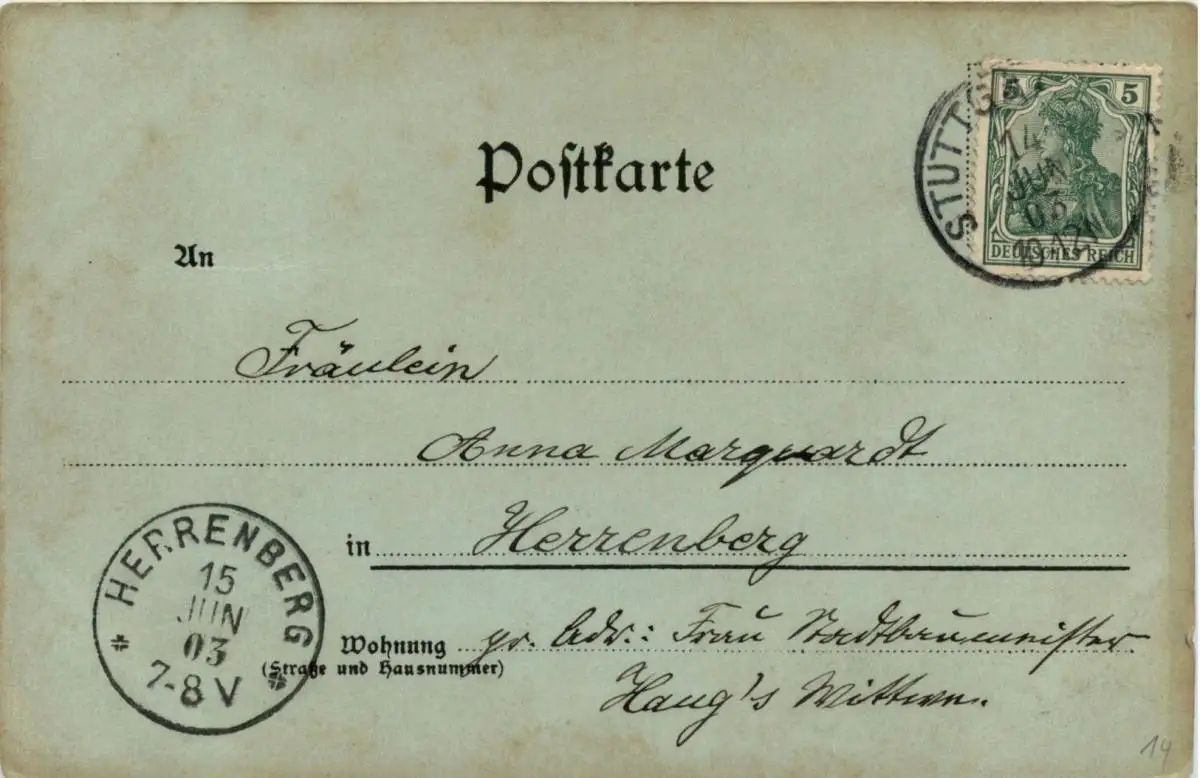 Postkarte
5 5
DEUTSCHES REICH
STUTTG
14
JUN
03
An
Fräulein
Anna Marquardt
in Herrenberg
Wohnung pr. Adr.: Frau Stadtbaumeister
(Straße und Hausnummer)
Haug's Wittwe.
HERRENBERG
15
JUN
03
7-8 V
14